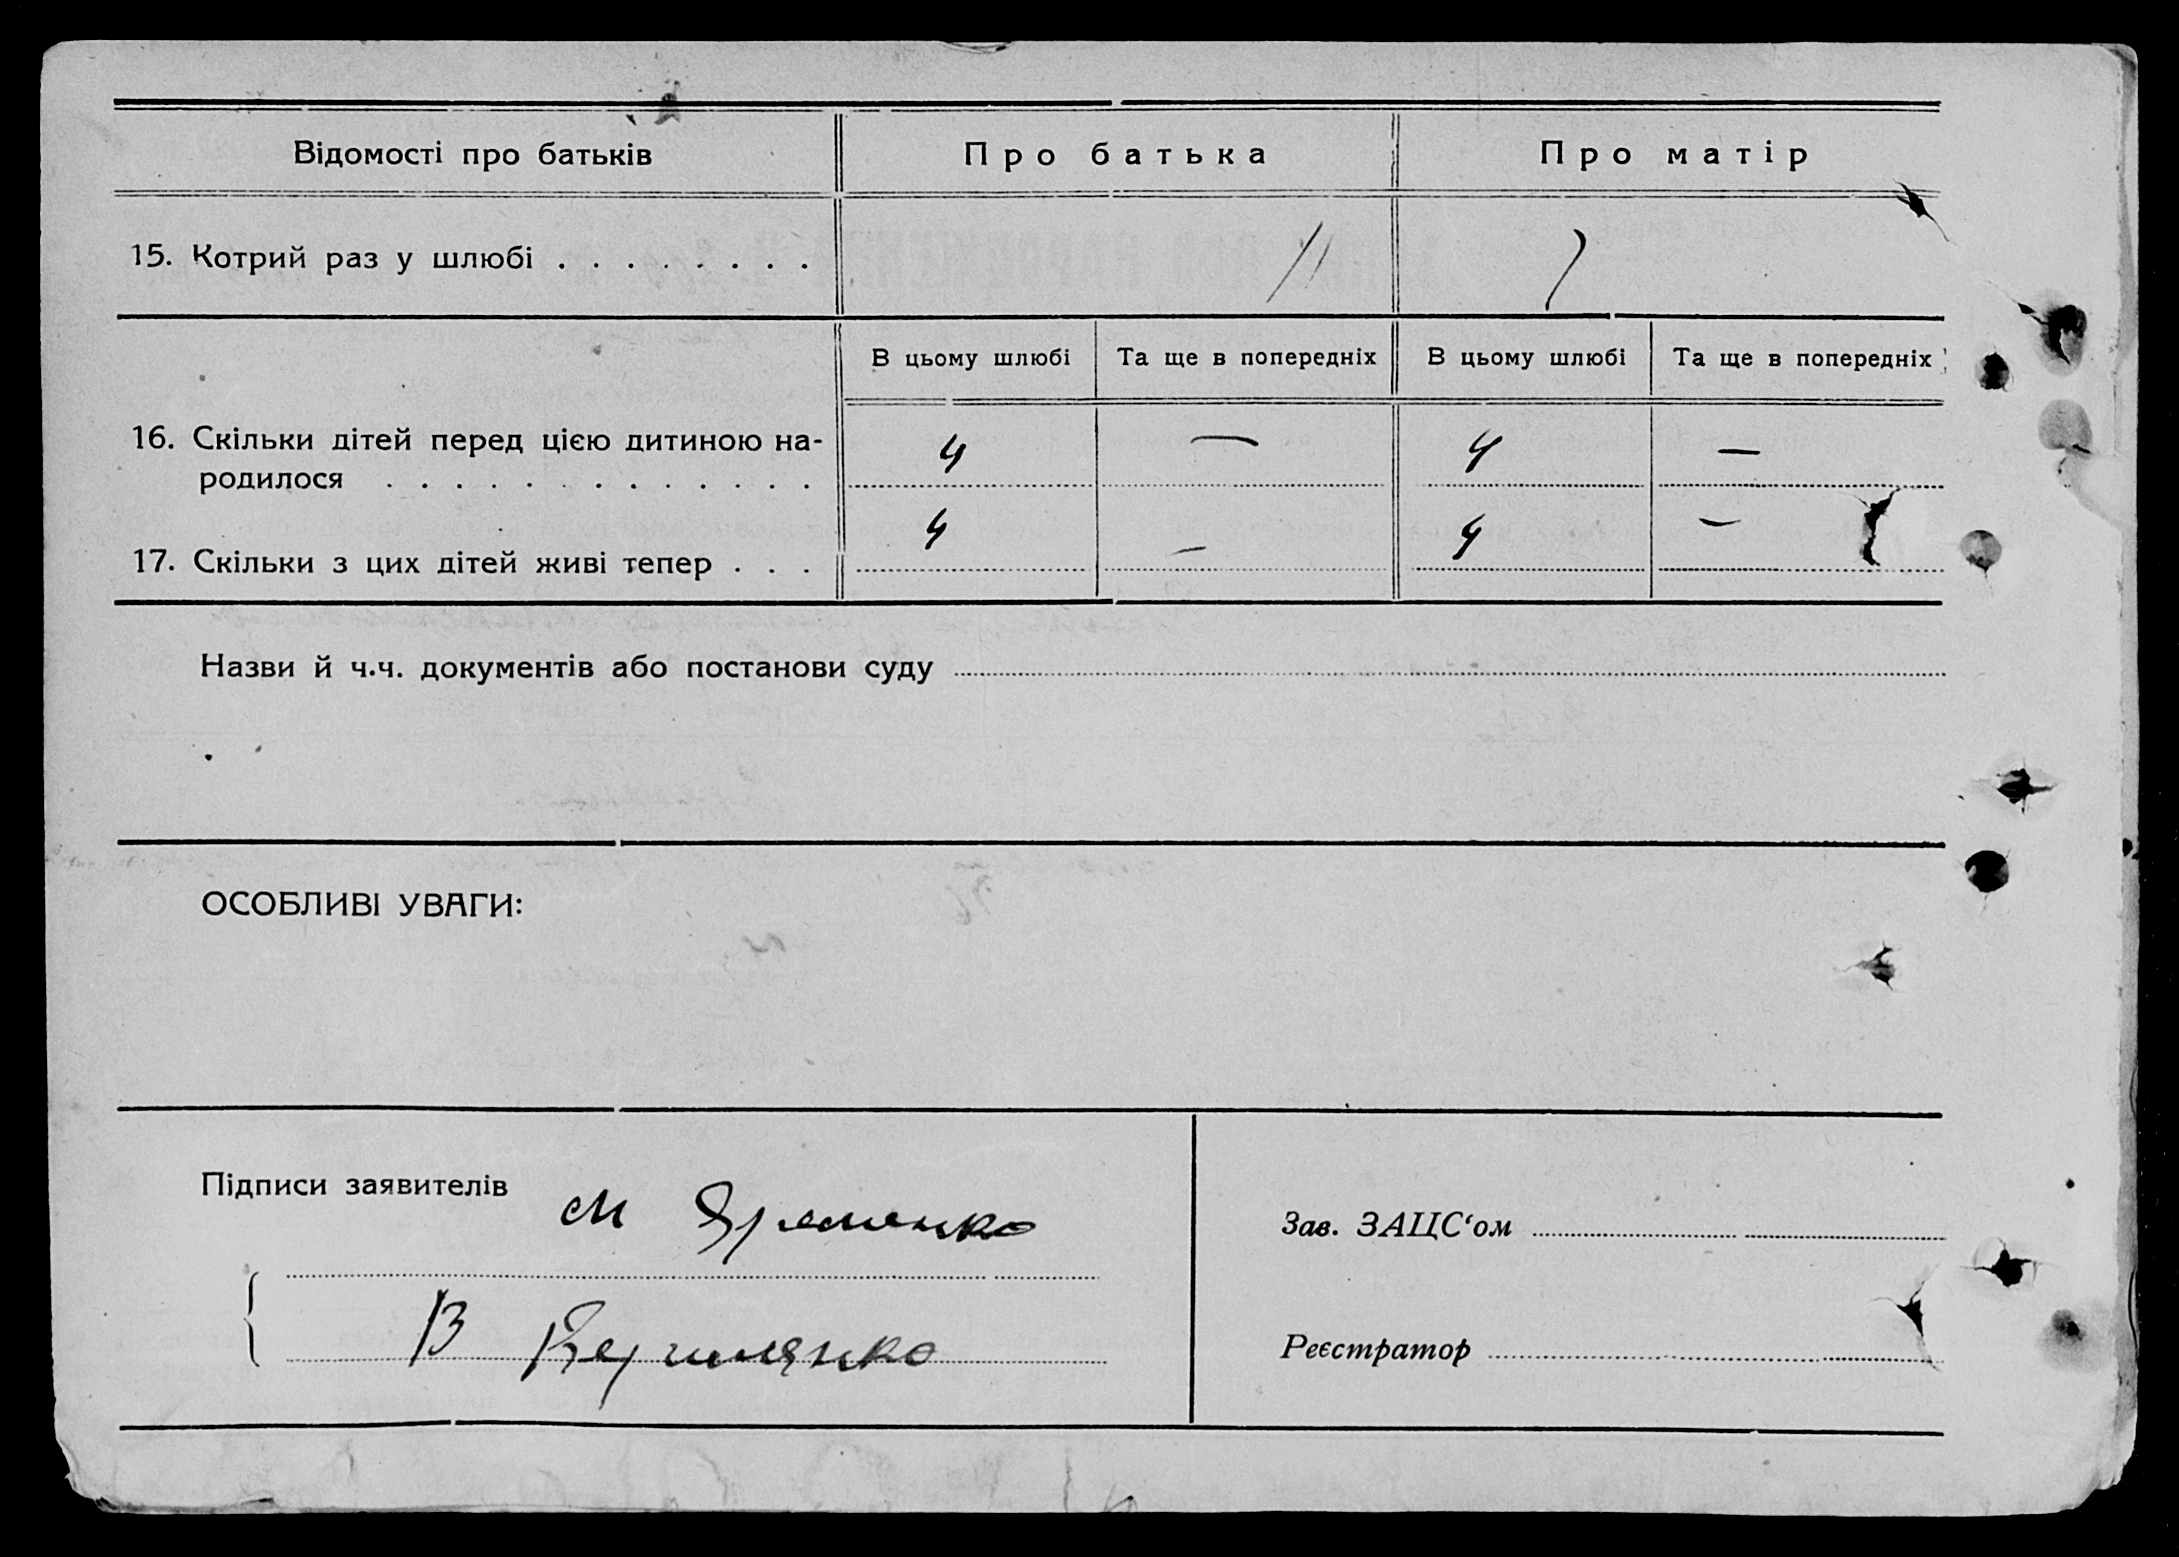 Відомості про батьків Про батька Про матір
15. Котрий раз у шлюбі . . . . . . . .
В цьому шлюбі Та ще в попередніх В цьому шлюбі Та ще в попередніх
16. Скільки дітей перед цією дитиною на-
родилося . . . . . . . . . . . . . 4 — 4 —
17. Скільки з цих дітей живі тепер . . . 4 — 4 —
Назви й ч.ч. документів або постанови суду
ОСОБЛИВІ УВАГИ:
Підписи заявителів М Яременко
В
Зав. ЗАЦС‘ом
Реєстратор